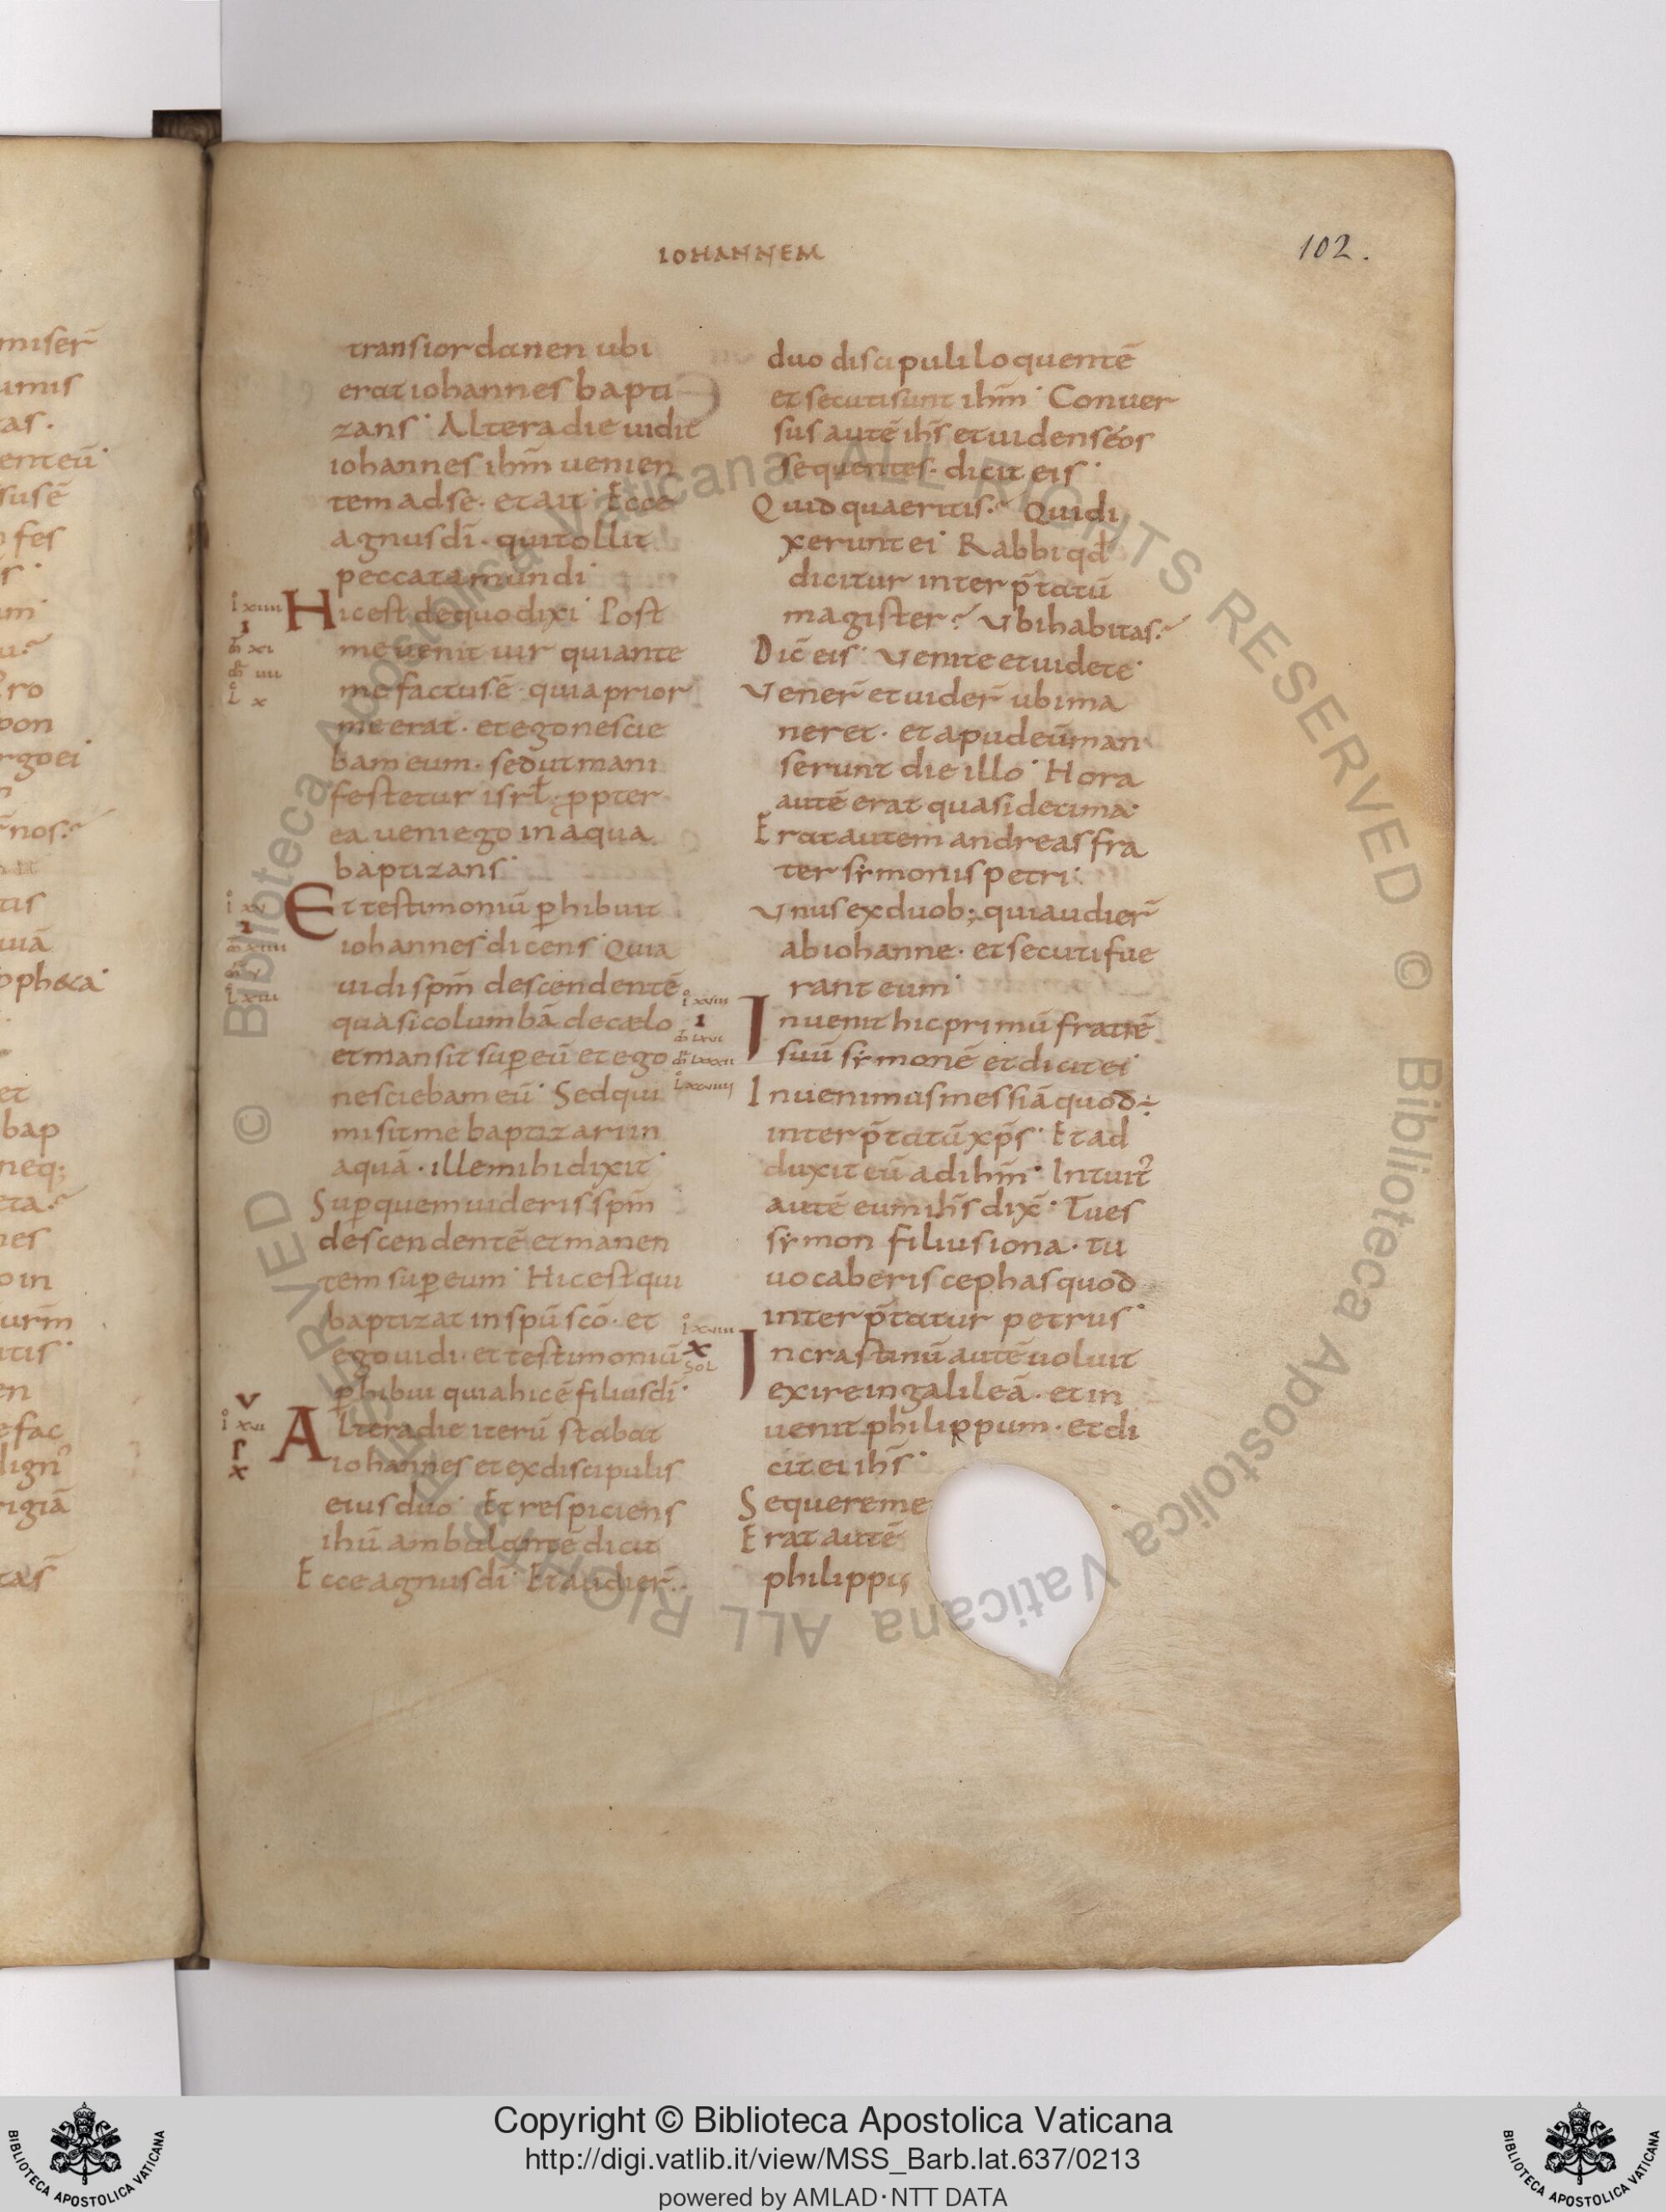 IOHANNEM
102.
transiordanen ubi
erat iohannes bapti
zans· Altera die uidit
iohannes ihm̄ uenien
tem ad se· et ait· Ecce
agnus dī· qui tollit
peccata mundi·
Hic est de quo dixi· Post
me uenit uir qui ante
me factus ē· quia prior
me erat· et ego nescie
bam eum· sed ut mani
festetur isrƚ· ꝓpter
ea ueni ego in aqua
baptizans·
Et testimoniū ꝑhibuit
iohannes dicens· Quia
uidi spm̄ descendentē
quasi columbā de cælo
et mansit suꝑ eū et ego
nesciebam eū· Sed qui
misit me baptizari in
aquā· ille mihi dixit·
Suꝑ quem uideris spm̄
descendentē et manen
tem suꝑ eum· Hic est qui
baptizat in spū scō· et
ego uidi· et testimoniū
ꝑhibui quia hic ē filius dī·
Altera die iterū stabat
iohannes et ex discipulis
eius duo· Et respiciens
ihū ambulantē dicit
Ecce agnus dī· Et audier̄
duo discipuli loquentē
et secuti sunt ihm̄· Conuer
sus autē ihs̄ et uidens eos
sequentes· dicit eis·
Quid quaeritis? Qui di
xerunt ei· Rabbi qđ
dicitur interp̄tatū
magister? Vbi habitas?
Dic̄ eis· Venite et uidete·
Vener̄ et uider̄ ubi ma
neret· et apud eū man
serunt die illo· Hora
autē erat quasi decima·
Erat autem andreas fra
ter symonis petri·
Vnus ex duob; qui audier̄
ab iohanne· et secuti fue
rant eum·
Inuenit hic primū fratrē
suū symonē et dicit ei·
Inuenimus messiā quod ÷
interp̄tatū xp̄s· Et ad
duxit eū ad ihm̄· Intuit᷒
autē eum ihs̄ dix̄· Tu es
symon filius iona· tu
uocaberis cephas quod
interp̄tatur petrus·
In crastinū autē uoluit
exire in galileā· et in
uenit philippum· et di
cit ei ihs̄·
Sequere me
Erat autē
philippus
Copyright © Biblioteca Apostolica Vaticana
http://digi.vatlib.it/view/MSS_Barb.lat.637/0213
powered by AMLAD·NTT DATA